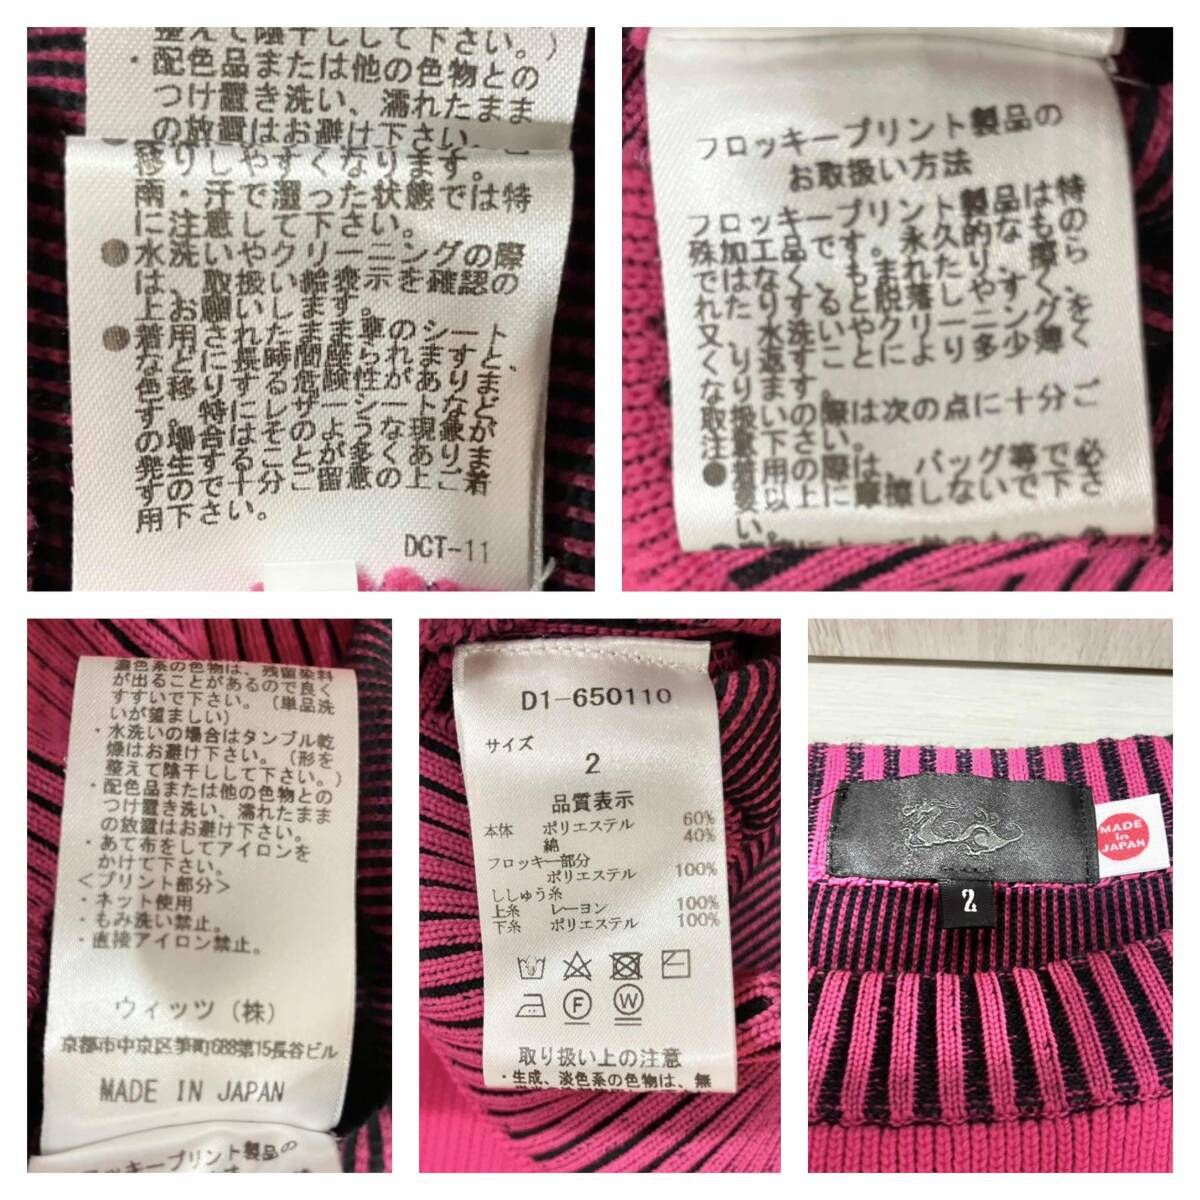 整えて陰干しして下さい。)
・配色品または他の色物との
つけ置き洗い、濡れたまま
の放置はお避け下さい。
移りしやすくなります。
雨・汗で湿った状態では特
に注意して下さい。
●水洗いやクリーニングの際
は、取扱い絵表示を確認の
上お願いします。
●着用されたまま車のシート
などに長時間座られますと、
色移りする危険性がありま
す。特にレザーシートなど
の場合はそのような現象が
発生することが多くあり
ますので十分ご留意の上ご着
用下さい。
DCT-11
フロッキープリント製品の
お取扱い方法
フロッキープリント製品は特
殊加工品です。永久的なもの
ではなく、もまれたり、擦ら
れたりすると脱落しやすく、
又、水洗いやクリーニングを
くり返すことにより多少薄く
なります。
取扱いの際は次の点に十分ご
注意下さい。
●着用の際は、バッグ等で必
要以上に摩擦しないで下さ
い。
濃色系の色物は、残留染料
が出ることがあるので良く
すすいで下さい。(単品洗
いが望ましい)
・水洗いの場合はタンブル乾
燥はお避け下さい。(形を
整えて陰干しして下さい。)
・配色品または他の色物との
つけ置き洗い、濡れたまま
の放置はお避け下さい。
・あて布をしてアイロンを
かけて下さい。
<プリント部分>
・ネット使用
・もみ洗い禁止。
・直接アイロン禁止。
ウィッツ(株)
京都市中京区笋町688第15長谷ビル
MADE IN JAPAN
フロッキープリント製品の
D1-650110
サイズ
2
品質表示
本体 ポリエステル 60%
綿 40%
フロッキー部分
ポリエステル 100%
ししゅう糸
上糸 レーヨン 100%
下糸 ポリエステル 100%
F W
取り扱い上の注意
・生成、淡色系の色物は、無
2
MADE
in
JAPAN